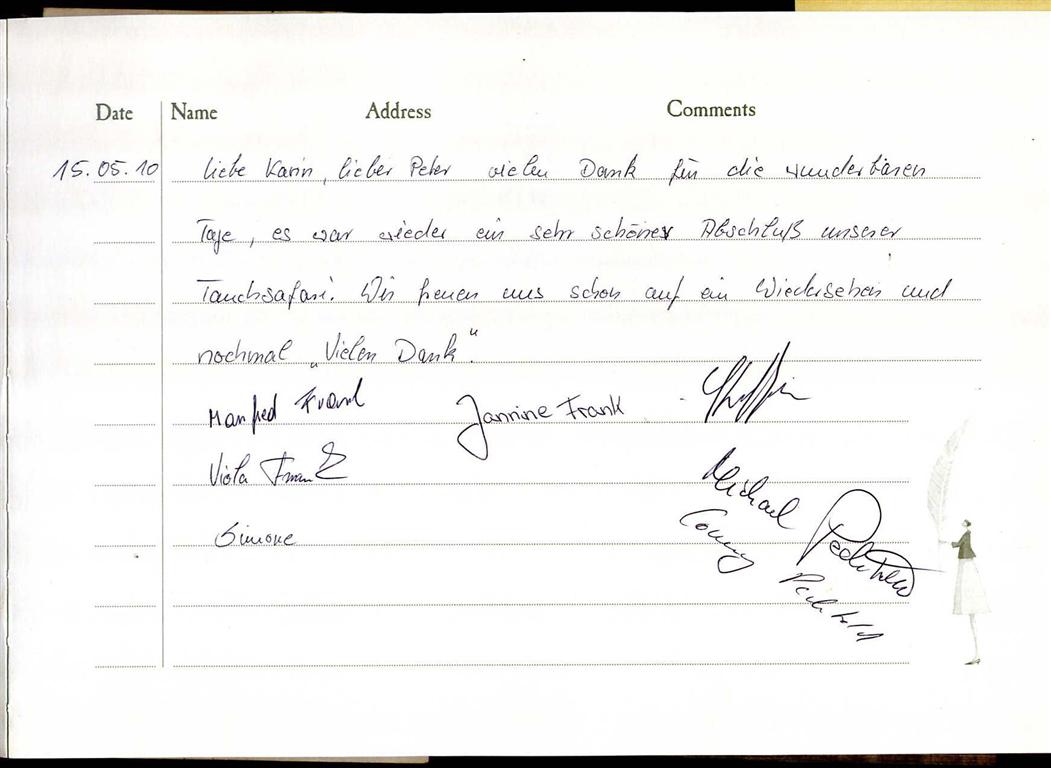 Date Name Address Comments
15.05.10 Liebe Karin, lieber Peter vielen Dank für die wunderbaren
Tage, es war wieder ein sehr schöner Abschluß unserer
Tauchsafari. Wir freuen uns schon auf ein Wiedersehen und
nochmal „Vielen Dank".
Manfred Frank Jannine Frank
Viola Frank
Michael
Simone
Conny